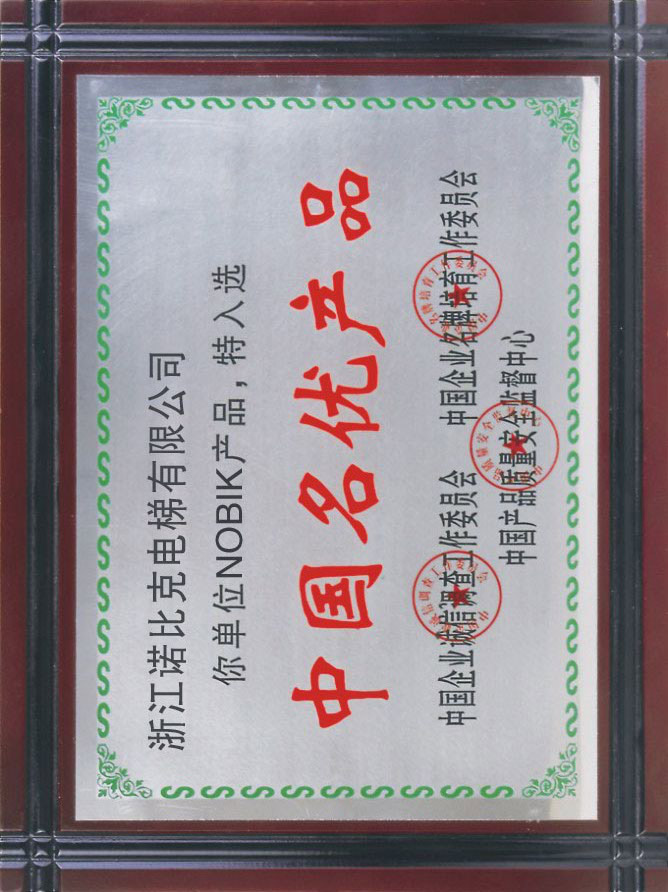 浙江诺比克电梯有限公司
你单位NOBIK产品，特入选
中国名优产品
中国企业诚信调查工作委员会 中国企业名牌培育工作委员会
中国产品质量安全监督中心